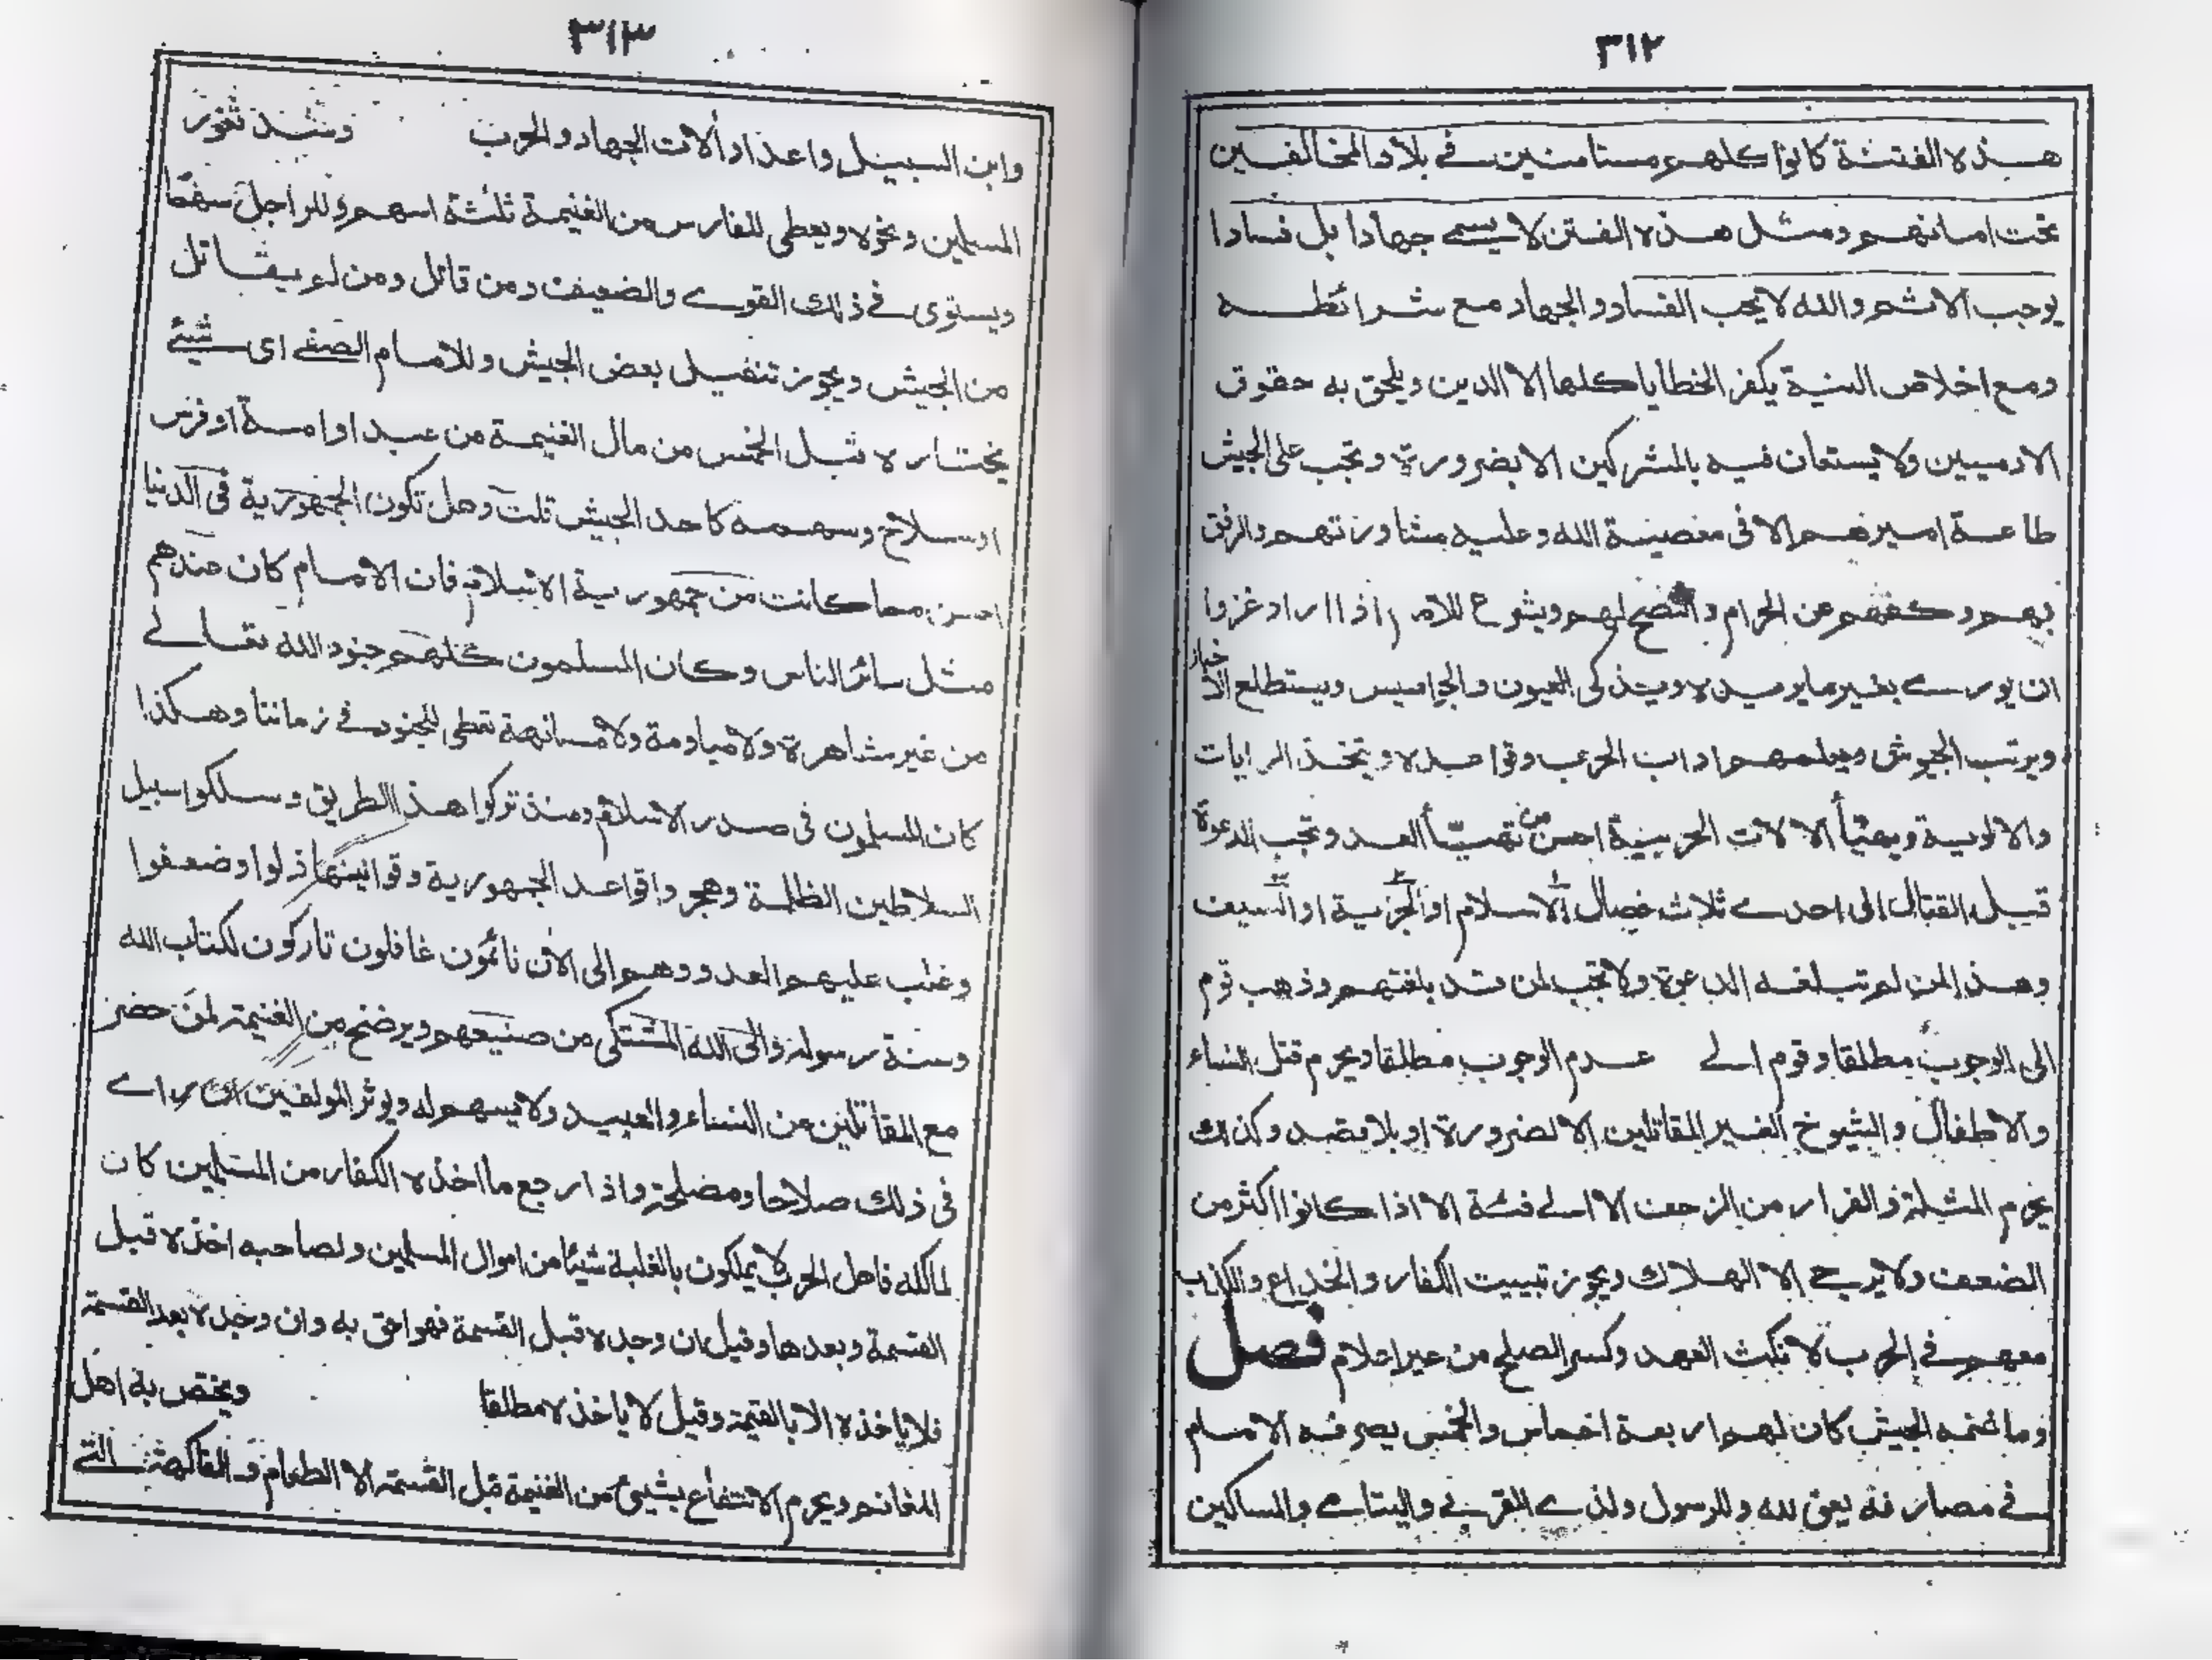 ٣١٢
هذه الفتنة كانوا كلهم مستامنين في بلاد المخالفين
تحت امانهم ومثل هذه الفتن لا يسمى جهادا بل فسادا
يوجب الاثم والله لا يحب الفساد والجهاد مع شرائطه
ومع اخلاص النية يكفر الخطايا كلها الا الدين ويلحق به حقوق
الادميين ولا يستعان فيه بالمشركين الا بضرورة وتجب على الجيش
طاعة اميرهم الا في معصية الله وعليه مشاورتهم والرفق
بهم وكفهم عن الحرام والنصح لهم ويشرع للامام اذا اراد غزوا
ان يورى بغير ما يريده ويذكى العيون والجواسيس ويستطلع الاخبار
ويرتب الجيوش ويعلمهم اداب الحرب وقواعده ويتخذ الرايات
والالوية ويهيأ الالات الحربية احسن من تهيأ العدو وتجب الدعوة
قبل القتال الى احدى ثلاث خصال الاسلام او الجزية او السيف
وهذا لمن لم تبلغه الدعوة ولا تجب لمن قد بلغتهم وذهب قوم
الى الوجوب مطلقا وقوم الى عدم الوجوب مطلقا ويحرم قتل النساء
والاطفال والشيوخ الغير المقاتلين الا لضرورة او بلا قصد وكذلك
يحرم المثلة والفرار من الزحف الا الى فئة الا اذا كانوا اكثر من
الضعف ولا يرجى الا الهلاك ويجوز تبييت الكفار والخداع والكذب
معهم في الحرب لا نكث العهد وكسر الصلح من غير اعلام فصل
وما غنمه الجيش كان لهم اربعة اخماس والخمس يصرفه الامام
في مصارفه يعنى لله وللرسول ولذى القربى واليتامى والمساكين
٣١٣
وابن السبيل واعداد آلات الجهاد والحرب وسد ثغور
المسلمين ونحوه ويعطى للفارس من الغنيمة ثلثة اسهم وللراجل سهما
ويستوى في ذلك القوى والضعيف ومن قاتل ومن لم يقاتل
من الجيش ويجوز تنفيل بعض الجيش وللامام الصفى اى شيئ
يختاره قبل الخمس من مال الغنيمة من عبد او امة او فرس
او سلاح وسهمه كاحد الجيش قلت وهل تكون الجمهورية في الدنيا
احسن مما كانت من جمهورية الاسلام فان الامام كان عندهم
مثل سائر الناس وكان المسلمون كلهم جنود الله تعالى
من غير مشاهرة ولا مياومة ولا مسانهة تعطى للجنود في زماننا وهكذا
كان المسلمون في صدر الاسلام ومنذ تركوا هذا الطريق وسلكوا سبيل
السلاطين الظلمة وهجروا قواعد الجمهورية وقوانينها ذلوا وضعفوا
وغلب عليهم العدو وهم الى الان نائمون غافلون تاركون لكتاب الله
وسنة رسوله والى الله المشتكى من صنيعهم ويرضخ من الغنيمة لمن حضر
مع المقاتلين من النساء والعبيد ولا يسهم له ويوثر المولفين ان راى
في ذلك صلاحا ومصلحة واذا رجع ما اخذه الكفار من المسلمين كان
لمالكه فاهل الحرب لا يملكون بالغلبة شيئا من اموال المسلمين ولصاحبه اخذه قبل
القسمة وبعدها وقيل ان وجده قبل القسمة فهو احق به وان وجده بعد القسمة
فلا ياخذه الا بالقيمة وقيل لا ياخذه مطلقا ويختص به اهل
المغانم ويحرم الانتفاع بشيئ من الغنيمة قبل القسمة الا الطعام والفاكهة التى